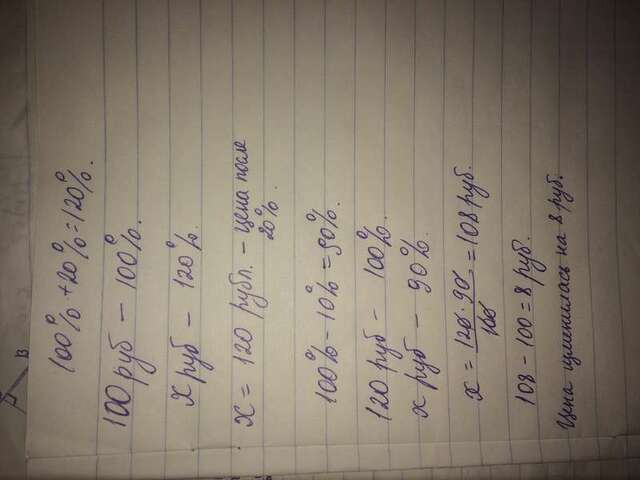 B
100% + 20% = 120%.
100 руб – 100%.
x руб – 120%.
x = 120 рубл. – цена после
20%.
100% – 10% = 90%.
120 руб – 100%.
x руб – 90%.
x = 120 · 90 / 100 = 108 руб.
108 – 100 = 8 руб.
Цена изменилась на 8 руб.